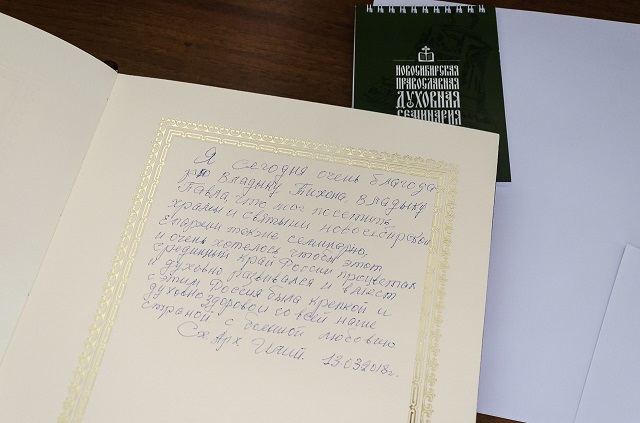 НОВОСИБИРСКАЯ
ПРАВОСЛАВНАЯ
ДУХОВНАЯ
СЕМИНАРИЯ
Я сегодня очень благода
рю Владыку Тихона, Владыку
Павла что мог посетить
храмы и святыни новосибирской
Епархии также семинарию.
и очень хотелось чтобы этот
срединный край России процветал
и духовно развивался и вмест
с этим Россия была крепкой и
духовно здоровой со всей наше
страной с большой любовию
Сх Арх Илий. 13.03.2018г.